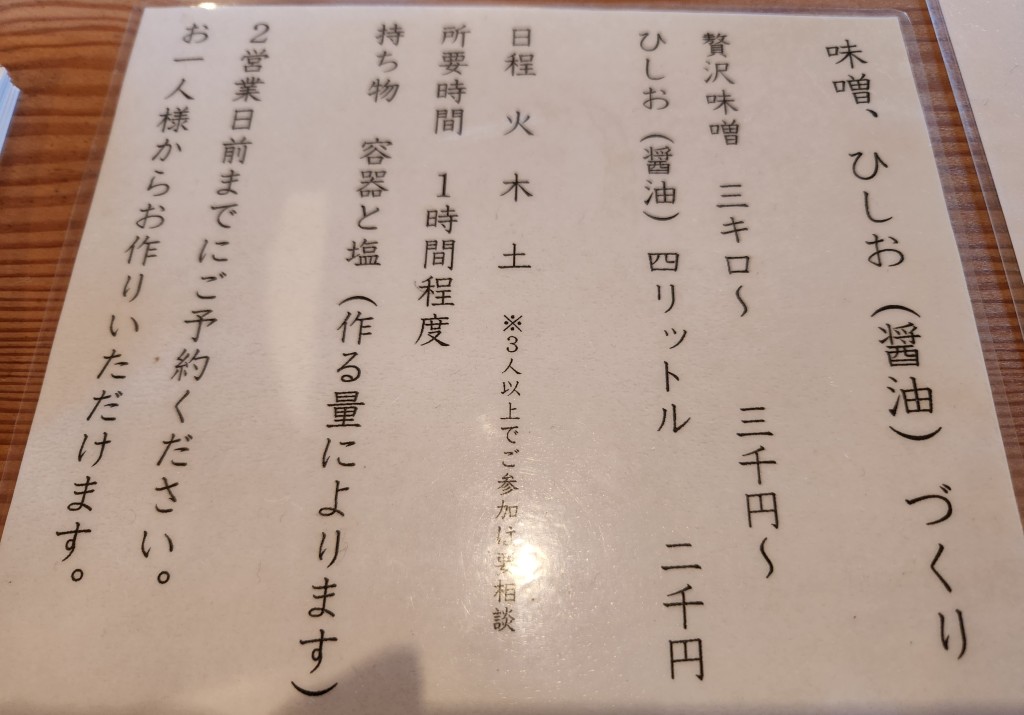 味噌、ひしお（醤油）づくり
贅沢味噌　三キロ～　三千円～
ひしお（醤油）四リットル　二千円
日程　火　木　土　※３人以上でご参加は要相談
所要時間　１時間程度
持ち物　容器と塩（作る量によります）
２営業日前までにご予約ください。
お一人様からお作りいただけます。